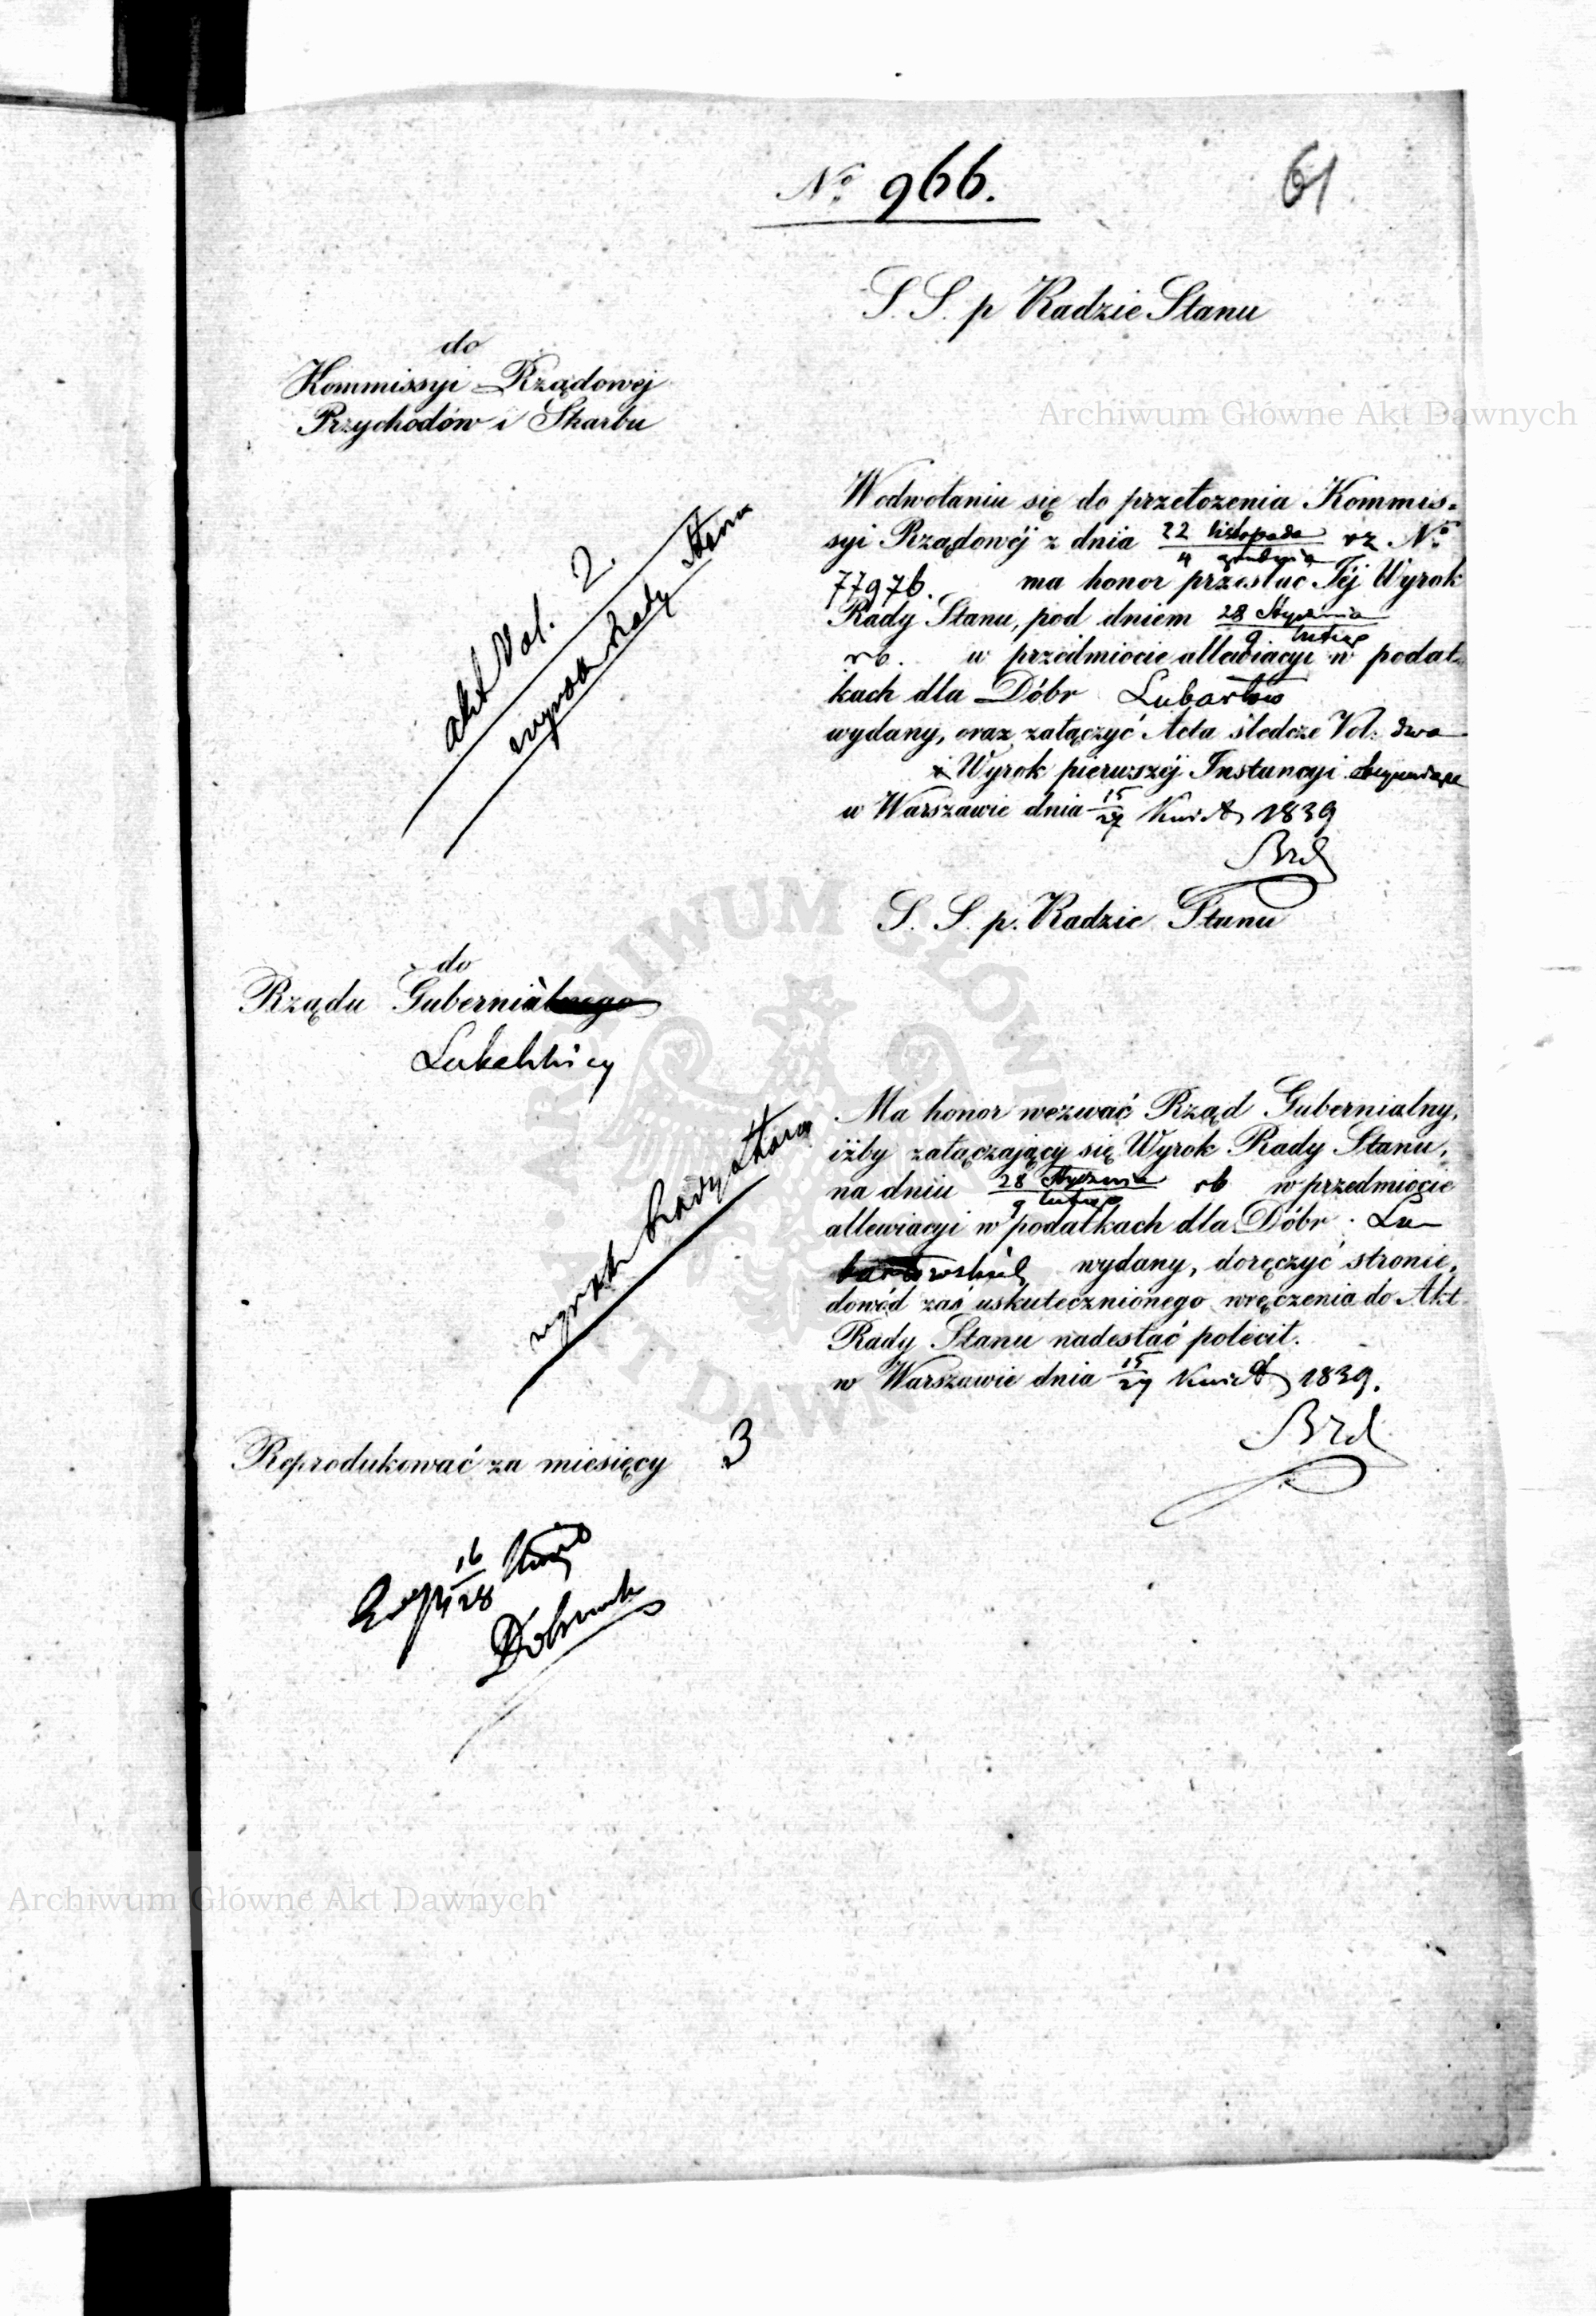 No 966.
61
S. S. p Radzie Stanu
do
Kommissyi Rządowej
Przychodów i Skarbu
Archiwum Główne Akt Dawnych
W odwołaniu się do przełożenia Kommis=
syi Rządowéj z dnia 22 listopada / 4 grudnia rz No
77976. ma honor przesłać Téj Wyrok
Rady Stanu, pod dniem 28 Stycznia / 9 lutego
rb. w przedmiocie allewiacyi w podat=
kach dla Dóbr Lubartow
wydany, oraz załączyć Acta śledcze Vol: dwa
i Wyrok pierwszéj Instancyi
w Warszawie dnia 15/27 Kwiet 1839
Brd
akt Vol. 2.
wyrok Rady Stanu
S. S. p. Radzie Stanu
do
Rządu Gubernialnego
Lubelskiey
Ma honor wezwać Rząd Gubernialny,
iżby załączający się Wyrok Rady Stanu,
na dniu 28 Stycznia / 9 lutego rb w przedmiocie
allewiacyi w podatkach dla Dóbr Lu
bartowskich wydany, doręczyć stronie,
dowód zaś uskutecznionego wręczenia do Akt
Rady Stanu nadesłać polecił.
w Warszawie dnia 15/27 Kwiet 1839.
Brd
wyrok Rady Stanu
Reprodukować za miesięcy 3
16/28 Kwiet
ARCHIWUM GŁÓWNE AKT DAWNYCH
Archiwum Główne Akt Dawnych